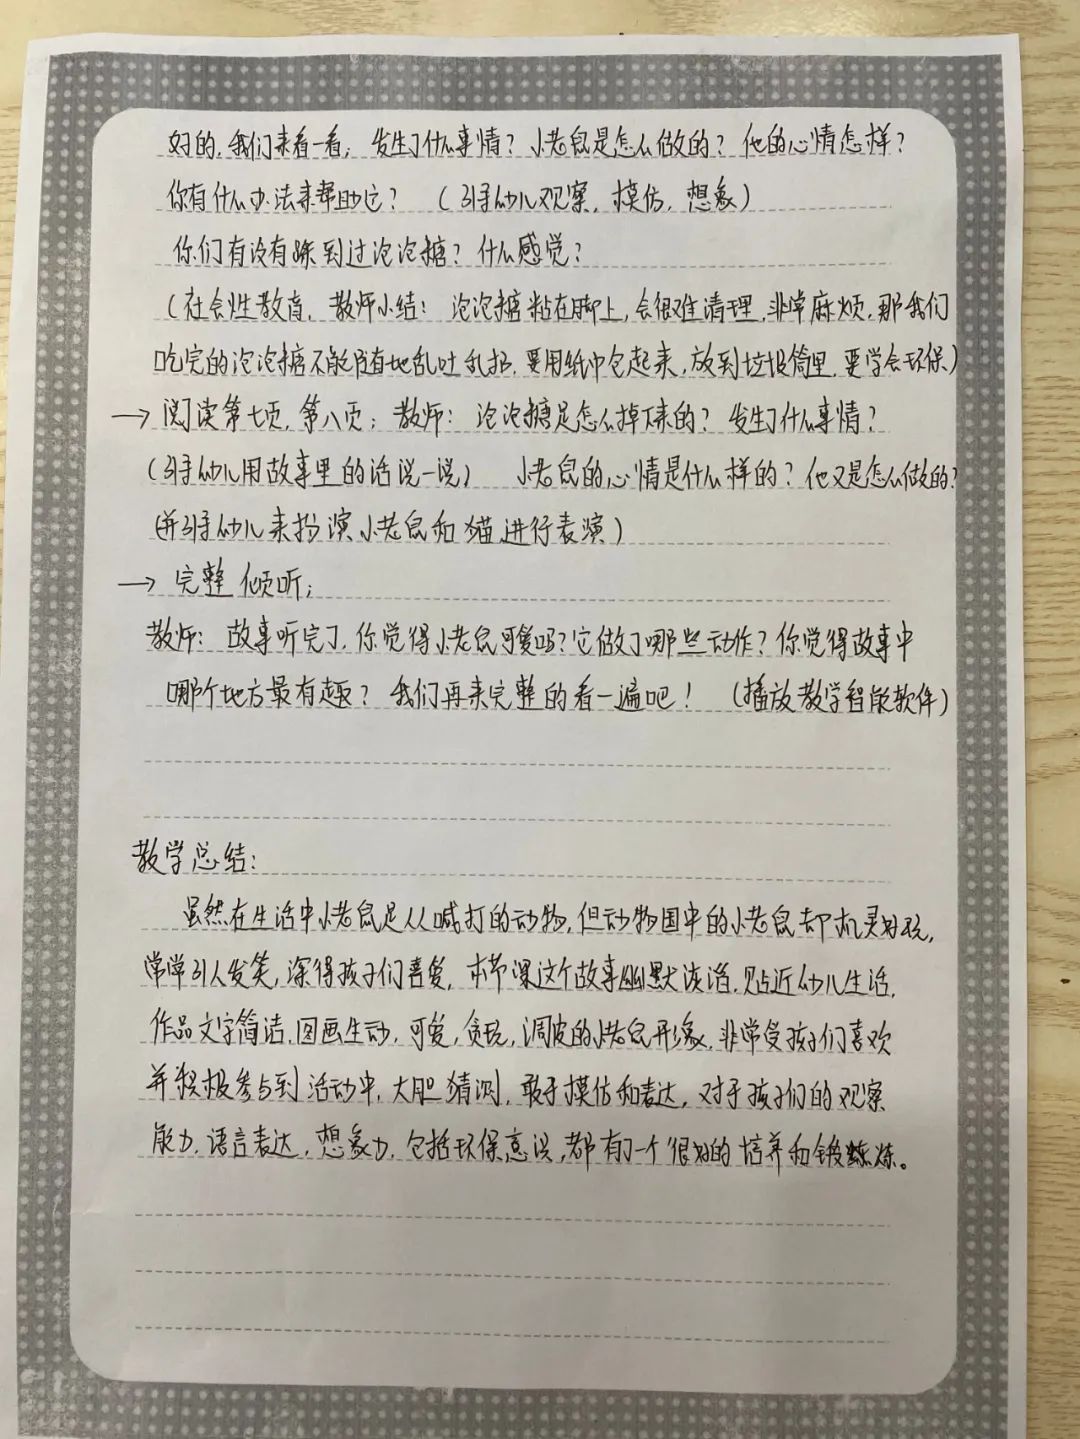 好的,我们来看一看,发生了什么事情?小老鼠是怎么做的?他的心情怎样?
你有什么办法来帮助它?(引导幼儿观察,模仿,想象)
你们有没有踩到过泡泡糖?什么感觉?
(社会性教育,教师小结:泡泡糖粘在脚上,会很难清理,非常麻烦,那我们
吃完的泡泡糖不能随地乱吐乱扔,要用纸巾包起来,放到垃圾筒里,要学会环保)
→ 阅读第七页,第八页;教师:泡泡糖是怎么掉下来的?发生了什么事情?
(引导幼儿用故事里的话说一说) 小老鼠的心情是什么样的?他又是怎么做的?
(并引导幼儿来扮演小老鼠和猫进行表演)
→ 完整倾听;
教师:故事听完了,你觉得小老鼠可爱吗?它做了哪些动作?你觉得故事中
哪个地方最有趣?我们再来完整的看一遍吧!(播放教学智能软件)
教学总结:
虽然在生活中小老鼠是人人喊打的动物,但动物园中的小老鼠却机灵好玩,
常常引人发笑,深得孩子们喜爱,本节课这个故事幽默诙谐,贴近幼儿生活,
作品文字简洁,图画生动,可爱,贪玩,调皮的小老鼠形象,非常受孩子们喜欢
并积极参与到活动中,大胆猜测,敢于模仿和表达,对于孩子们的观察
能力,语言表达,想象力,包括环保意识,都有了一个很好的培养和锻炼。